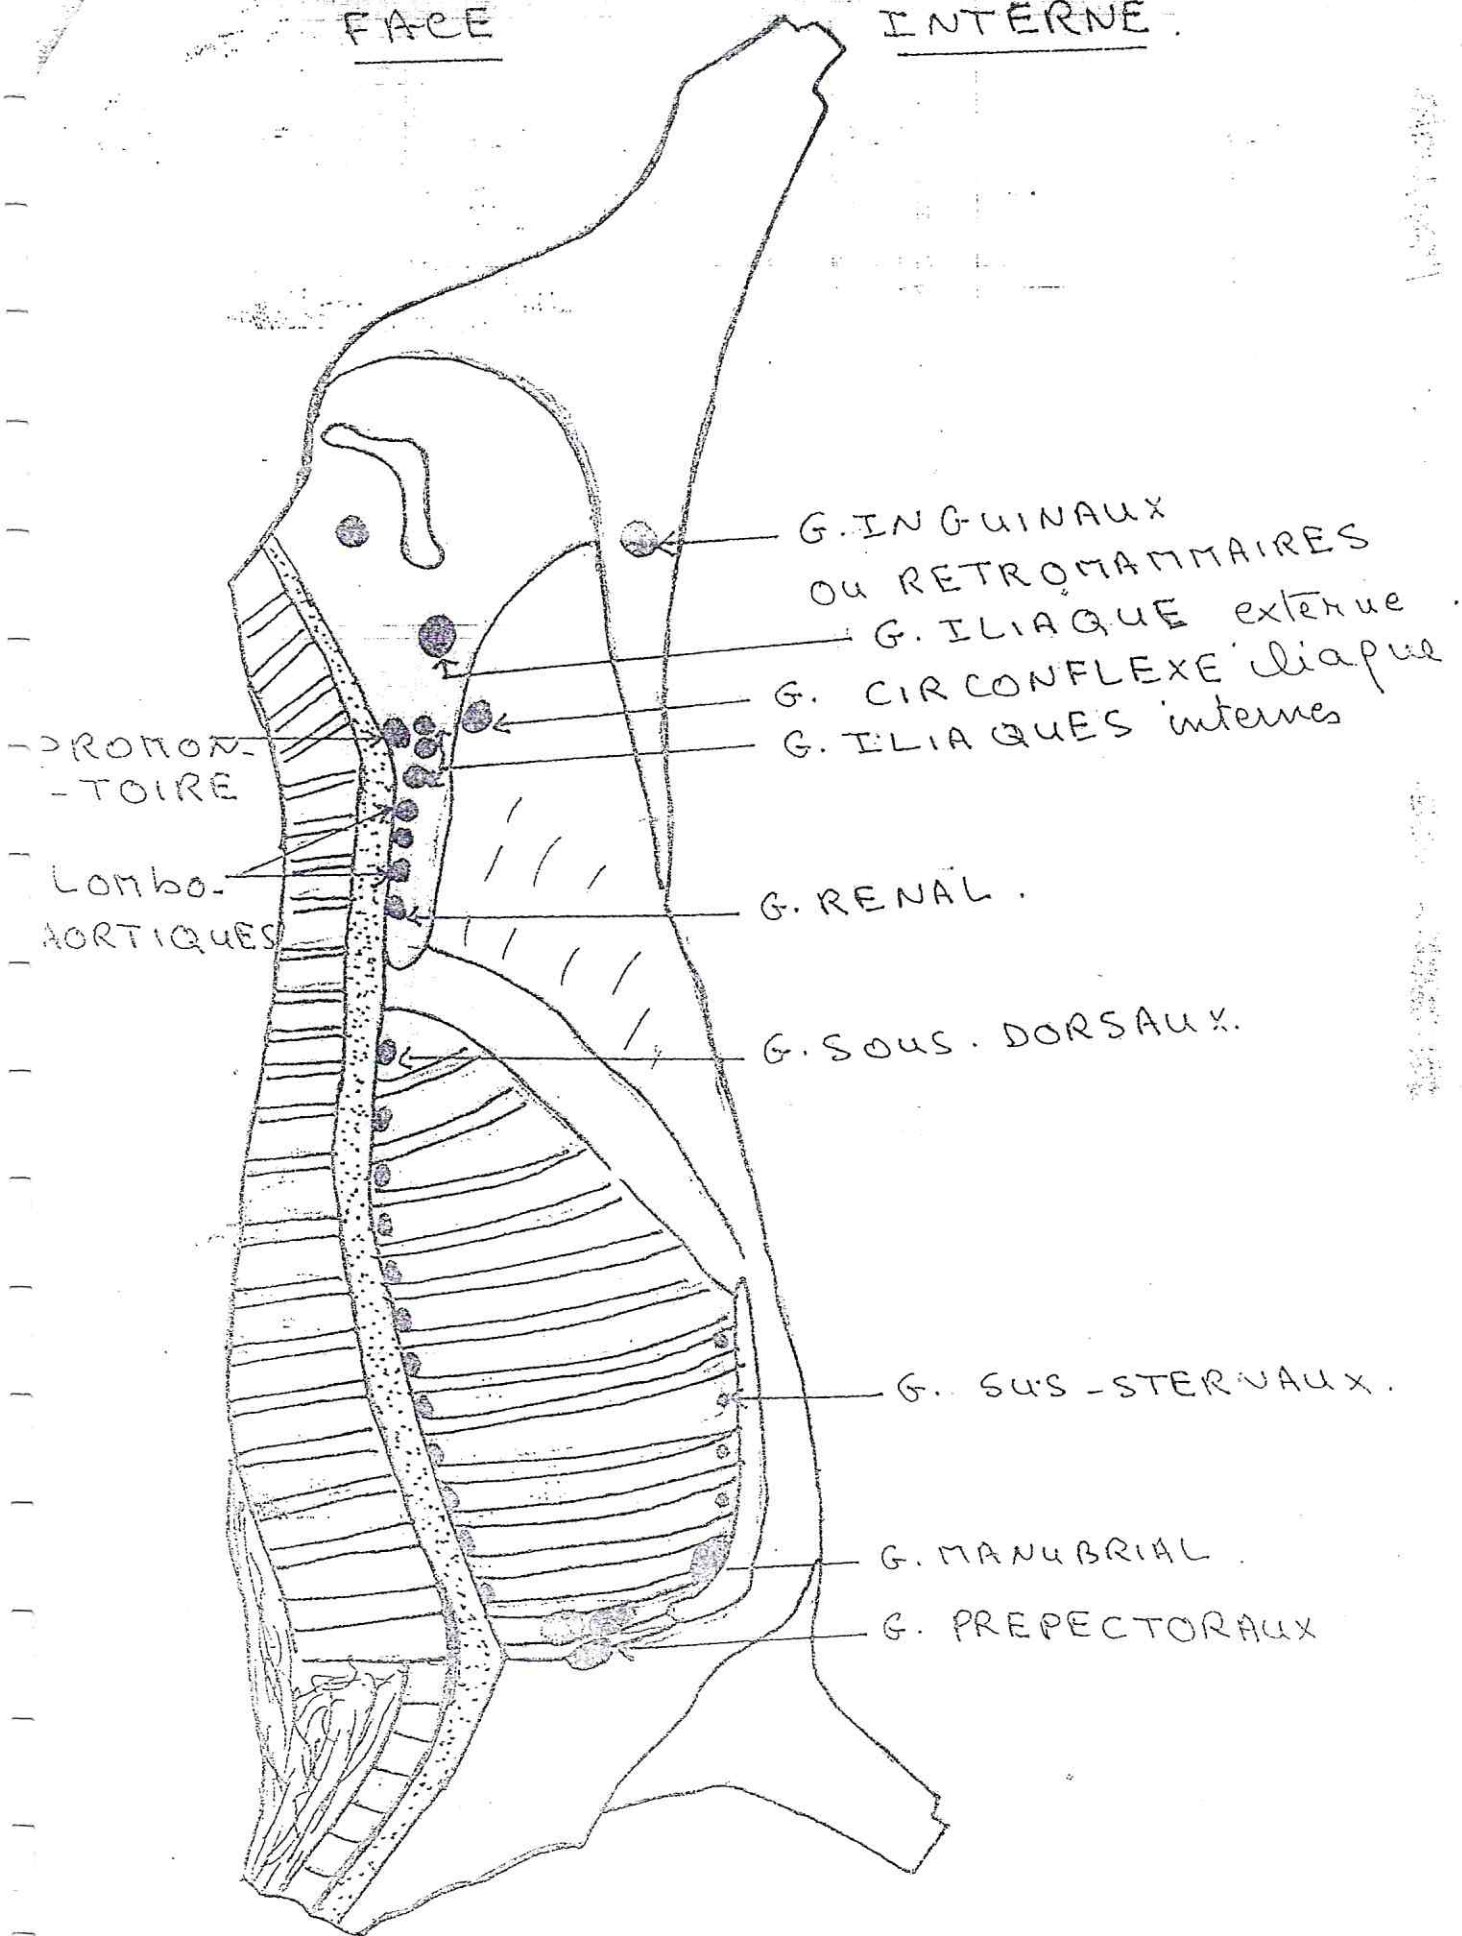 FACE INTERNE.
G. INGUINAUX
OU RETROMAMMAIRES
G. ILIAQUE externe
G. CIRCONFLEXE iliaque
G. ILIAQUES internes
PROMON-
-TOIRE
LOMBO-
AORTIQUES
G. RENAL.
G. SOUS. DORSAUX.
G. SUS-STERNAUX.
G. MANUBRIAL.
G. PREPECTORAUX